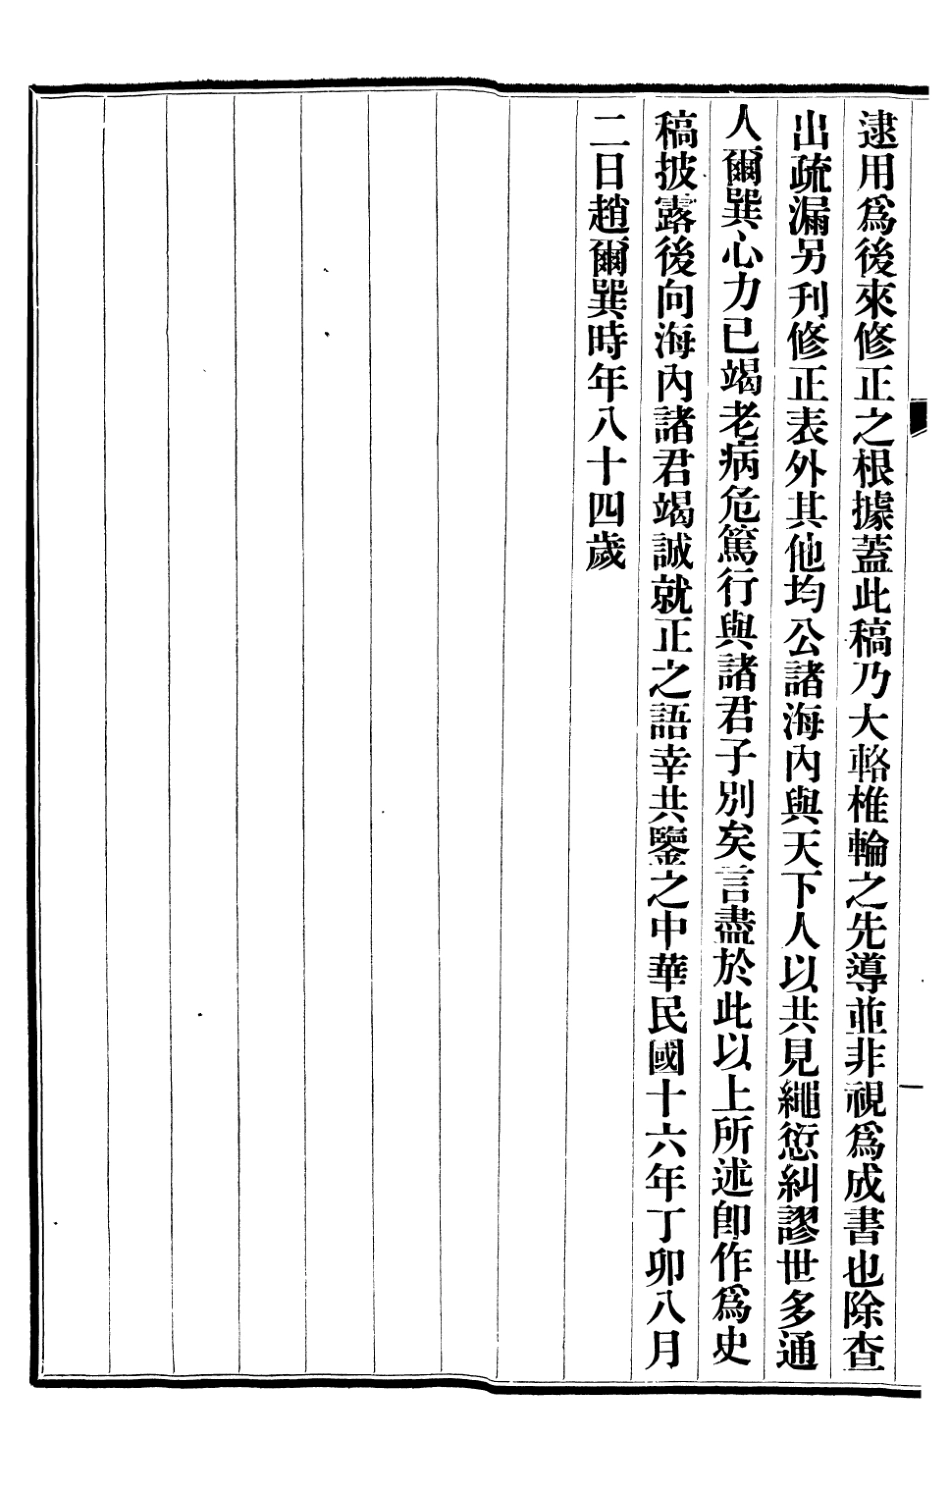 逮用爲後來修正之根據蓋此稿乃大輅椎輪之先導並非視爲成書也除查
出疏漏另刊修正表外其他均公諸海內與天下人以共見繩愆糾謬世多通
人爾巽心力已竭老病危篤行與諸君子別矣言盡於此以上所述卽作爲史
稿披露後向海內諸君竭誠就正之語幸共鑒之中華民國十六年丁卯八月
二日趙爾巽時年八十四歲